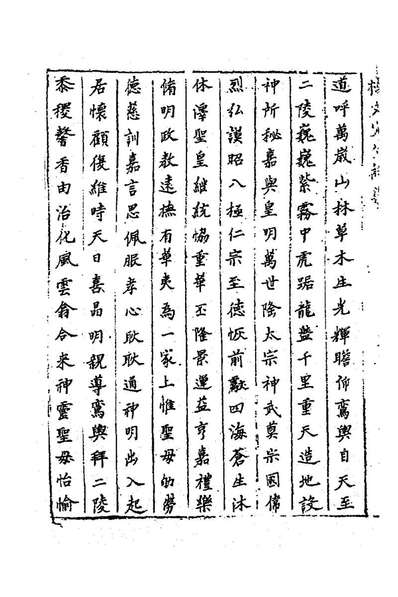 道呼萬嵗山林草木生光輝瞻仰鸞輿自天至
二陵巍巍紫霧中虎踞龍盤千里重天造地設
神所秘嘉與皇明萬世隆太宗神武奠宗國偉
烈弘謨昭八極仁宗至德恢前歡四海蒼生沐
休澤聖皇繼統恊重華丕隆景運益亨嘉禮樂
脩明政教逺撫有華夷為一家上惟聖母劬勞
德慈訓嘉言思佩服孝心欣欣通神明出入起
居懷顧復維時天日喜晶明親導鸞輿拜二陵
黍稷馨香由治化風雲翕合来神靈聖母怡愉